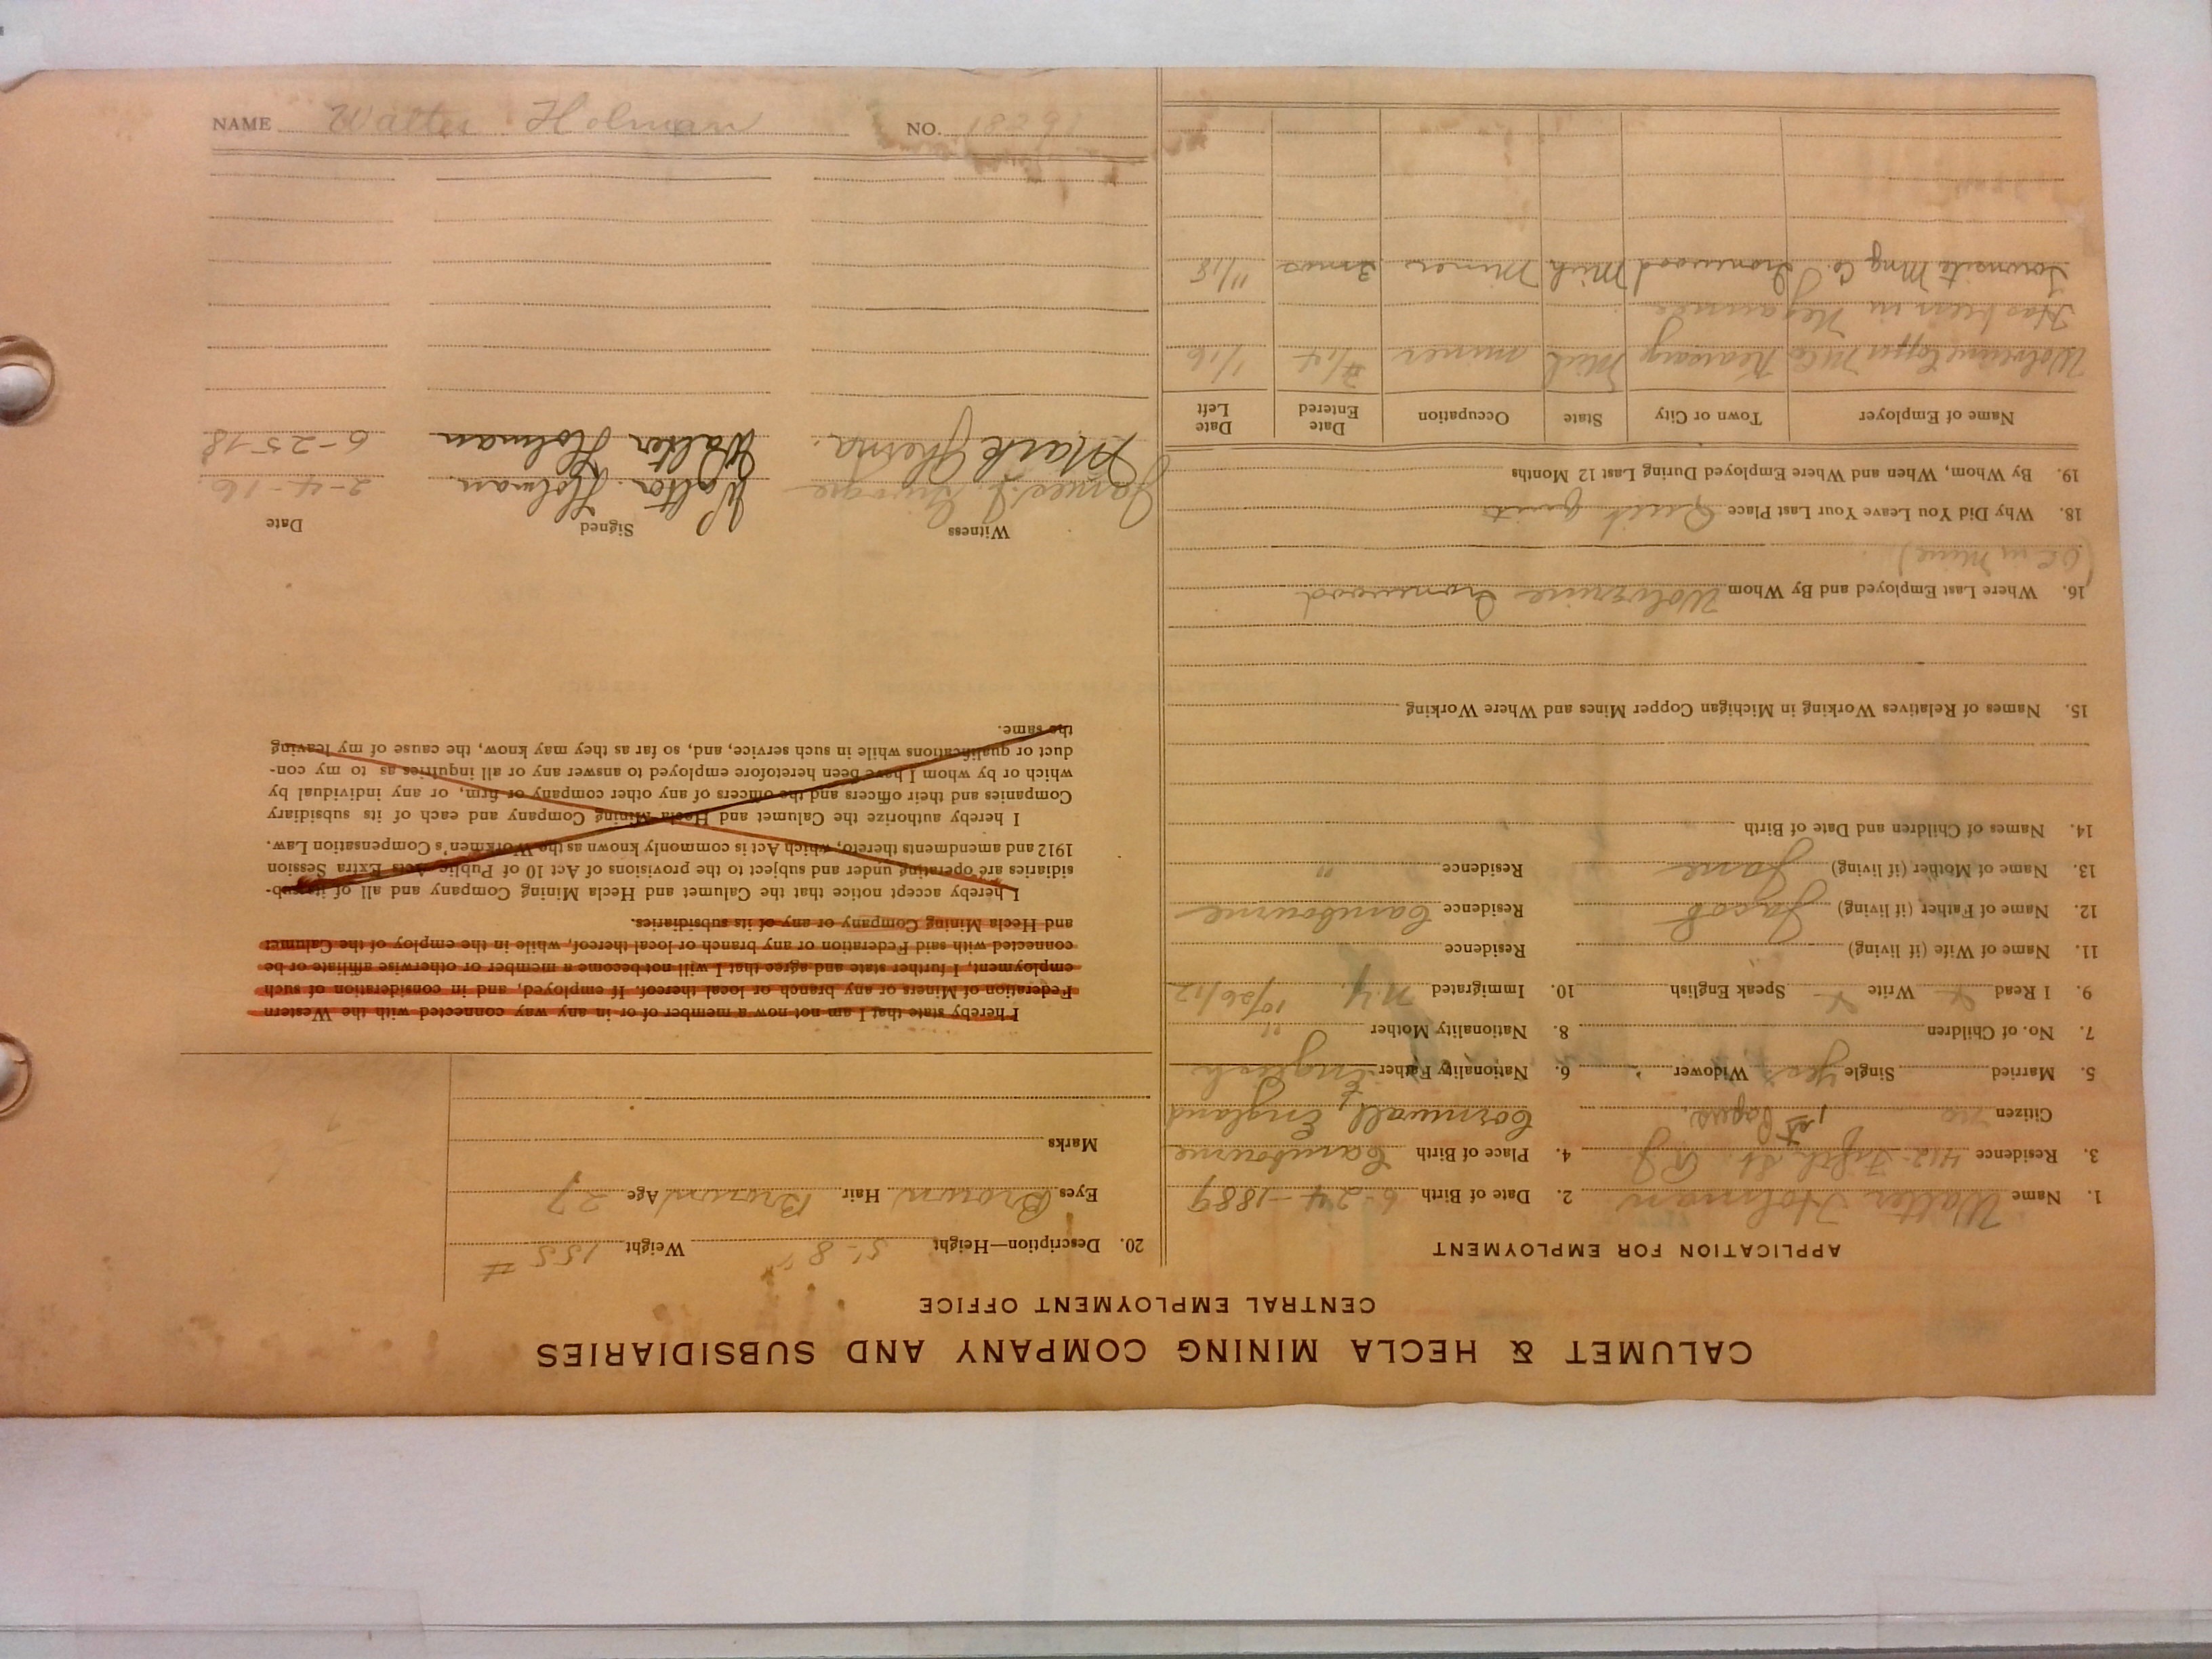 CALUMET & HECLA MINING COMPANY AND SUBSIDIARIES
CENTRAL EMPLOYMENT OFFICE
APPLICATION FOR EMPLOYMENT
1. Name Walter Holman 2. Date of Birth 6-24-1889
3. Residence 412 Fifth St. 4. Place of Birth Cambourne
Citizen no 1st Papers. Cornwall, England
5. Married Single yes Widower 6. Nationality Father English
7. No. of Children 8. Nationality Mother "
9. I Read Write Speak English 10. Immigrated N.Y. 10/26/12
11. Name of Wife (if living) Residence
12. Name of Father (if living) Jacob Residence Cambourne
13. Name of Mother (if living) Jane Residence "
14. Names of Children and Date of Birth
15. Names of Relatives Working in Michigan Copper Mines and Where Working
16. Where Last Employed and By Whom Wolverine Ironwood
(OC in Mine)
18. Why Did You Leave Your Last Place Quit quit
19. By Whom, When and Where Employed During Last 12 Months
Name of Employer Town or City State Occupation Date Entered Date Left
Wolverine Copper M Co Kearsarge Mich miner 7/14 1/16
Has been in Negaunee
Townsite Mng Co. Ironwood Mich Miner 3 mos 11/18
20. Description—Height 5'-8" Weight 155 #
Eyes Brown Hair Brown Age 27
Marks
I hereby state that I am not now a member of or in any way connected with the Western
Federation of Miners or any branch or local thereof. If employed, and in consideration of such
employment, I further state and agree that I will not become a member or otherwise affiliate or be
connected with said Federation or any branch or local thereof, while in the employ of the Calumet
and Hecla Mining Company or any of its subsidiaries.
I hereby accept notice that the Calumet and Hecla Mining Company and all of its sub-
sidiaries are operating under and subject to the provisions of Act 10 of Public Acts Extra Session
1912 and amendments thereto, which Act is commonly known as the Workmen's Compensation Law.
I hereby authorize the Calumet and Hecla Mining Company and each of its subsidiary
Companies and their officers and the officers of any other company or firm, or any individual by
which or by whom I have been heretofore employed to answer any or all inquiries as to my con-
duct or qualifications while in such service, and, so far as they may know, the cause of my leaving
the same.
Witness Signed Date
James Walter Holman 2-4-16
Mark Walter Holman 6-25-18
NAME Walter Holman NO. 18291